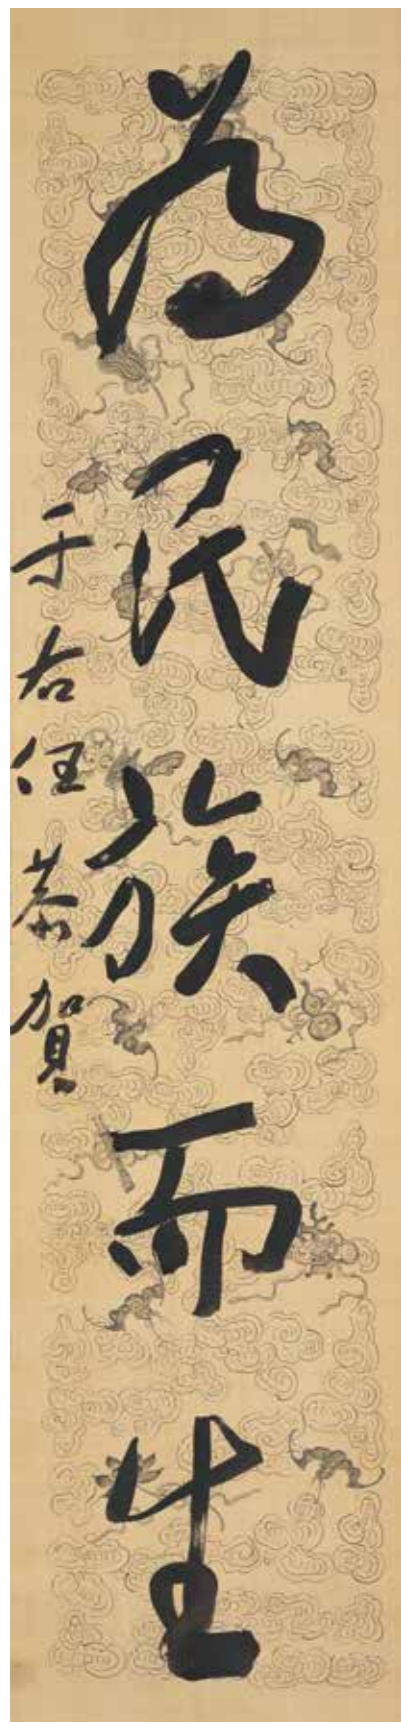 為民族而生
于右任恭賀